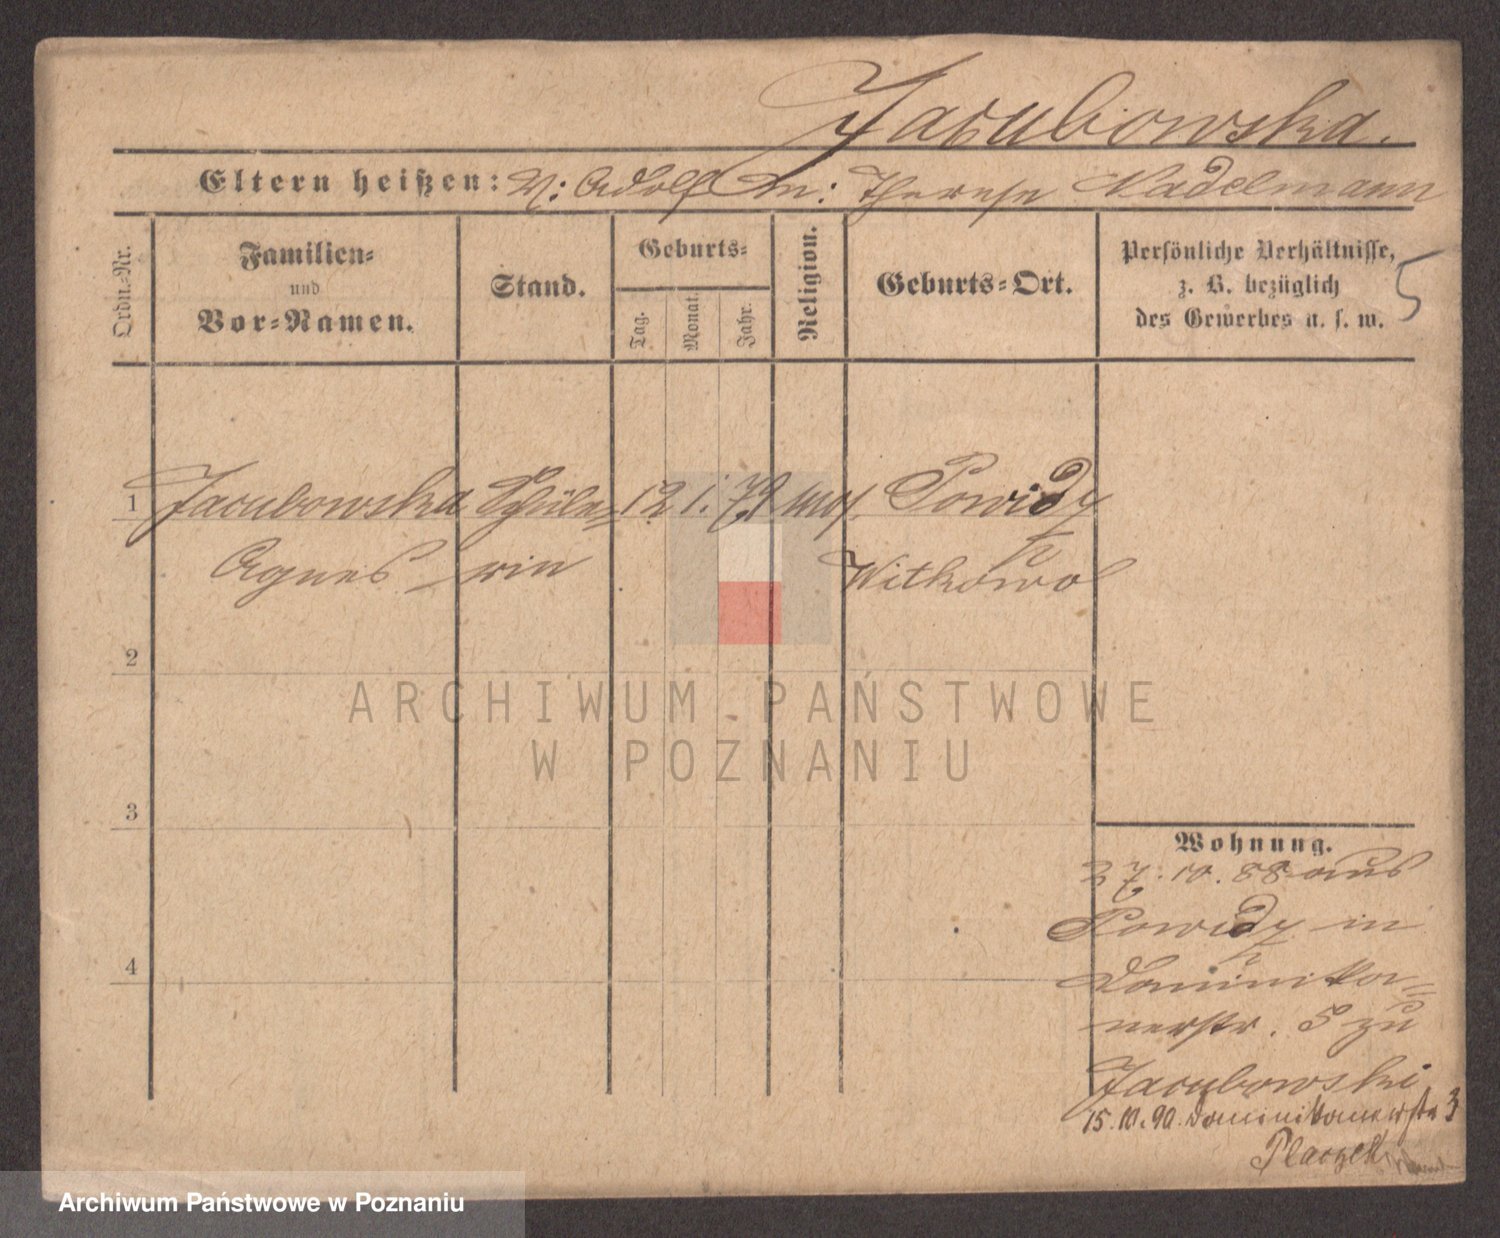 Jacubowska.
Eltern heißen: V: Adolf M: Therese Nadelmann
Ordn.-Nr.
Familien-
und
Vor-Namen.
Stand.
Geburts-
Tag.
Monat.
Jahr.
Religion.
Geburts-Ort.
Persönliche Verhältnisse,
z. B. bezüglich
des Gewerbes u. s. w.
5
1 Jacubowska Schüle- 12 1. 79 mos. Powidz
Agnes rin Witkowo
2
3
4
Wohnung.
27. 10. 88 aus
Powidz in
Dominika-
nerstr. 5 zu
Jacubowski
15.10.90. Dominikanerstr 3
Placzek
ARCHIWUM PAŃSTWOWE
W POZNANIU
Archiwum Państwowe w Poznaniu